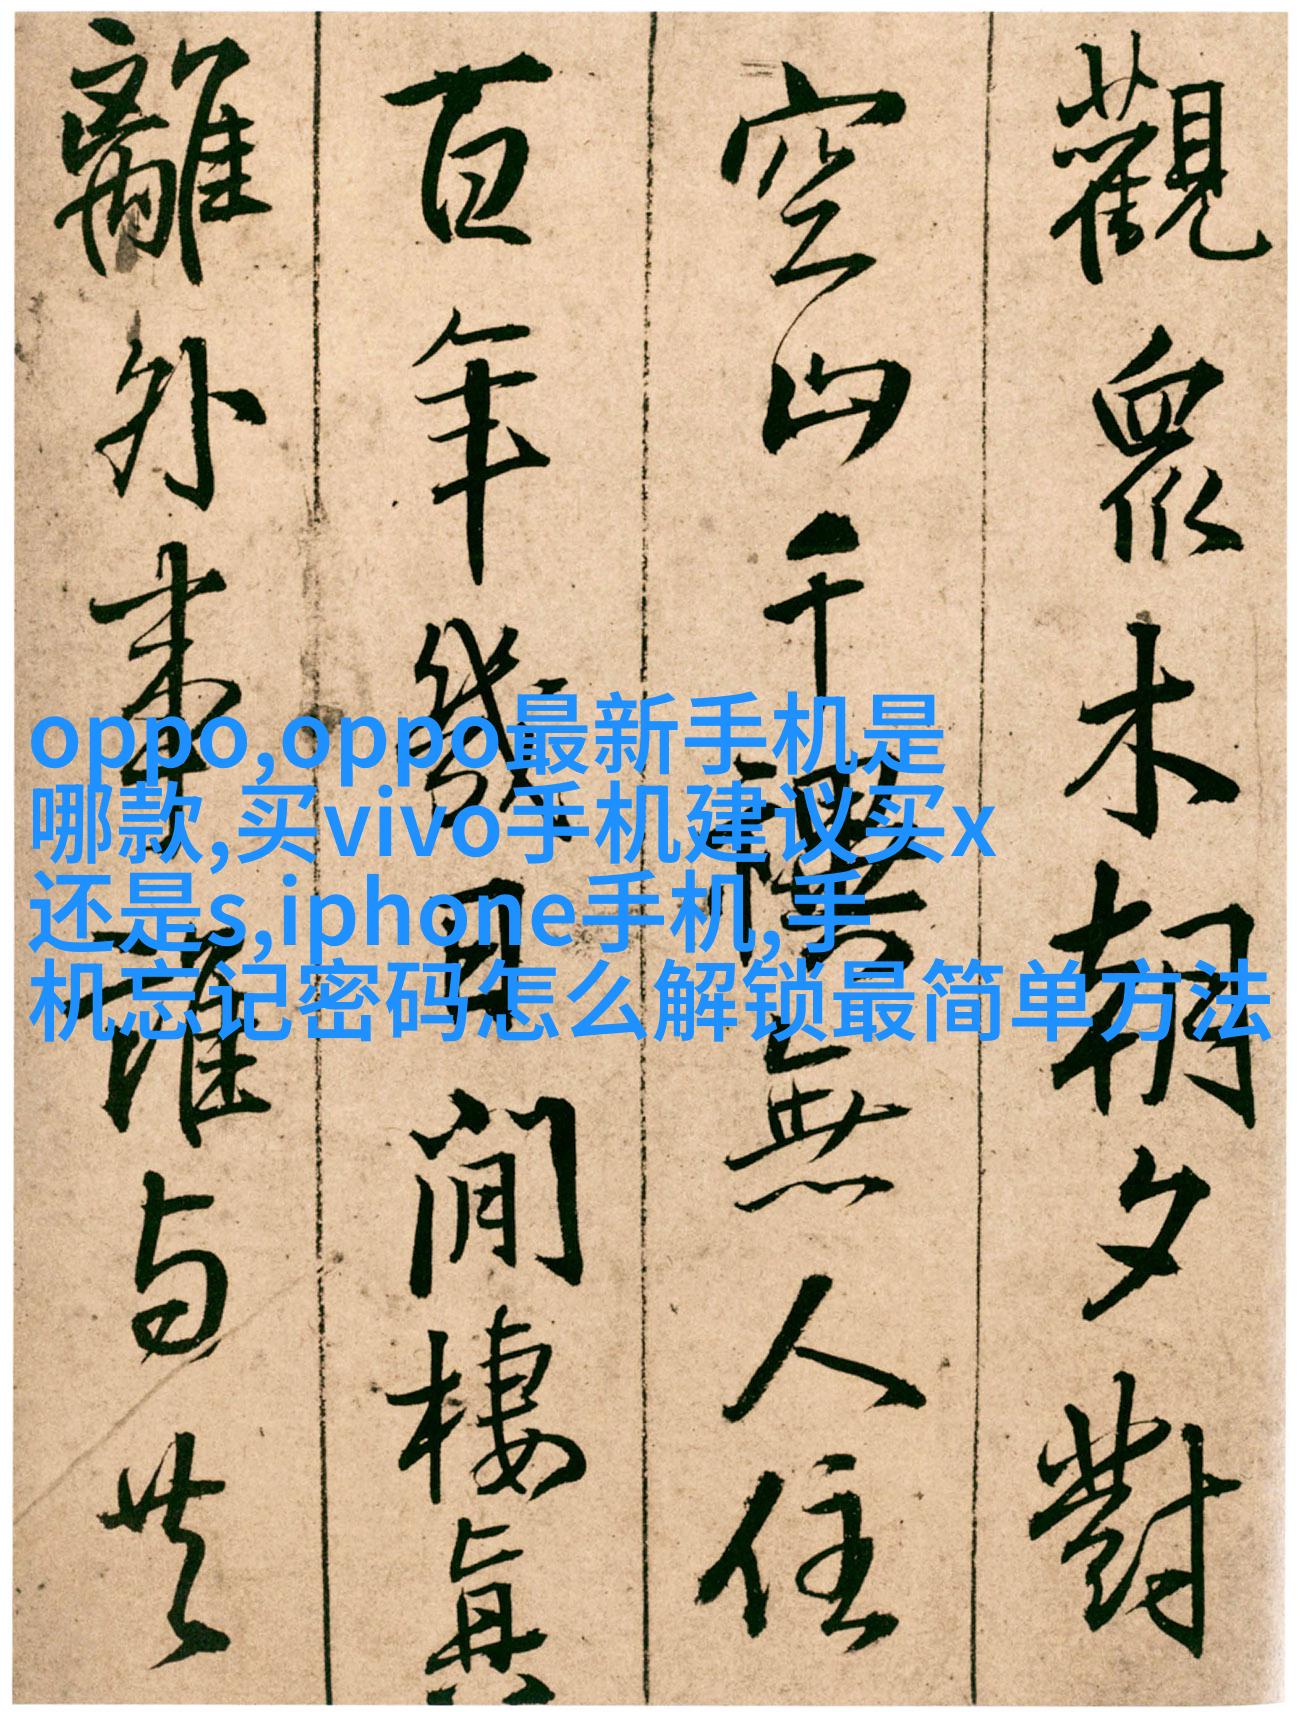 觀眾木朝夕對
空山千樸無人住
百年幾日閒棲真
離外来誰与共
oppo,oppo最新手机是
哪款,买vivo手机建议买x
还是s,iphone手机,手
机忘记密码怎么解锁最简单方法